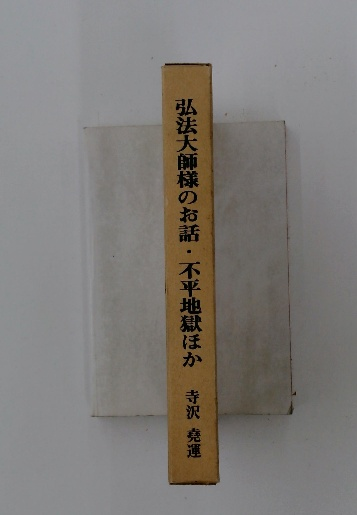 弘法大師様のお話・不平地獄ほか 寺沢 堯運